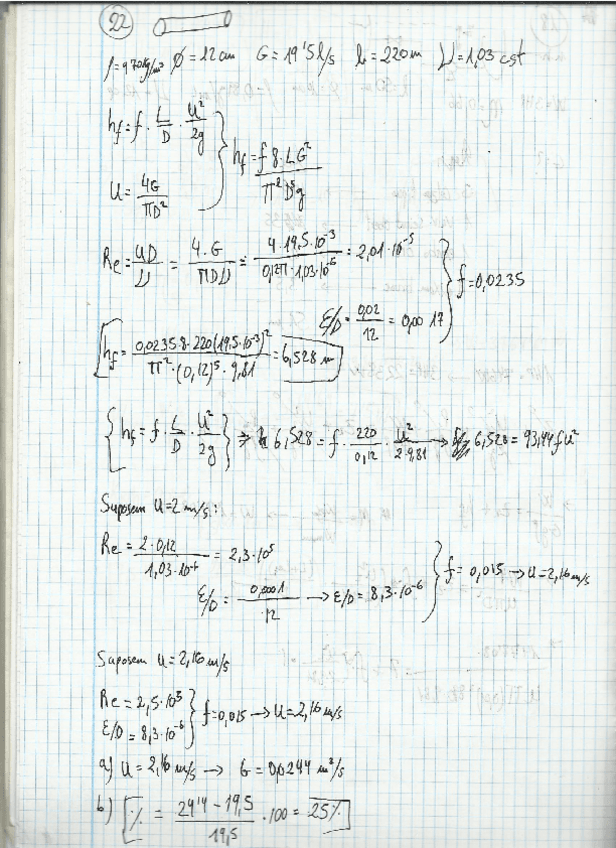 22
ρ=970kg/m³ φ=12cm G=19'5l/s L=220m ν=1,03 cst
hf=f · L/D · U²/2g
U = 4G/πD²
hf = f 8 · LG²/π²D⁵g
Re = UD/ν = 4·G/πDν = 4·19,5·10⁻³/0,12π·1,03·10⁻⁶ = 2,01·10⁻⁵
ε/D = 0,02/12 = 0,0017
f=0,0235
hf = 0,0235·8·220(19,5·10⁻³)²/π²·(0,12)⁵·9,81 = 6,528 m
{hf = f · L/D · U²/2g} ⇒ 6,528 = f · 220/0,12 · U²/2·9,81 → 6,528 = 93,44 f U²
Suposem U=2 m/s:
Re = 2·0,12/1,03·10⁻⁶ = 2,3·10⁵
ε/D = 0,0001/12 → ε/D = 8,3·10⁻⁶
f = 0,015 → U=2,16 m/s
Suposem U=2,16 m/s
Re = 2,5·10⁵
ε/D = 8,3·10⁻⁶
f=0,015 → U=2,16 m/s
a) U=2,16 m/s → G = 0,0244 m³/s
b) % = 24'4 - 19,5/19,5 · 100 = 25%